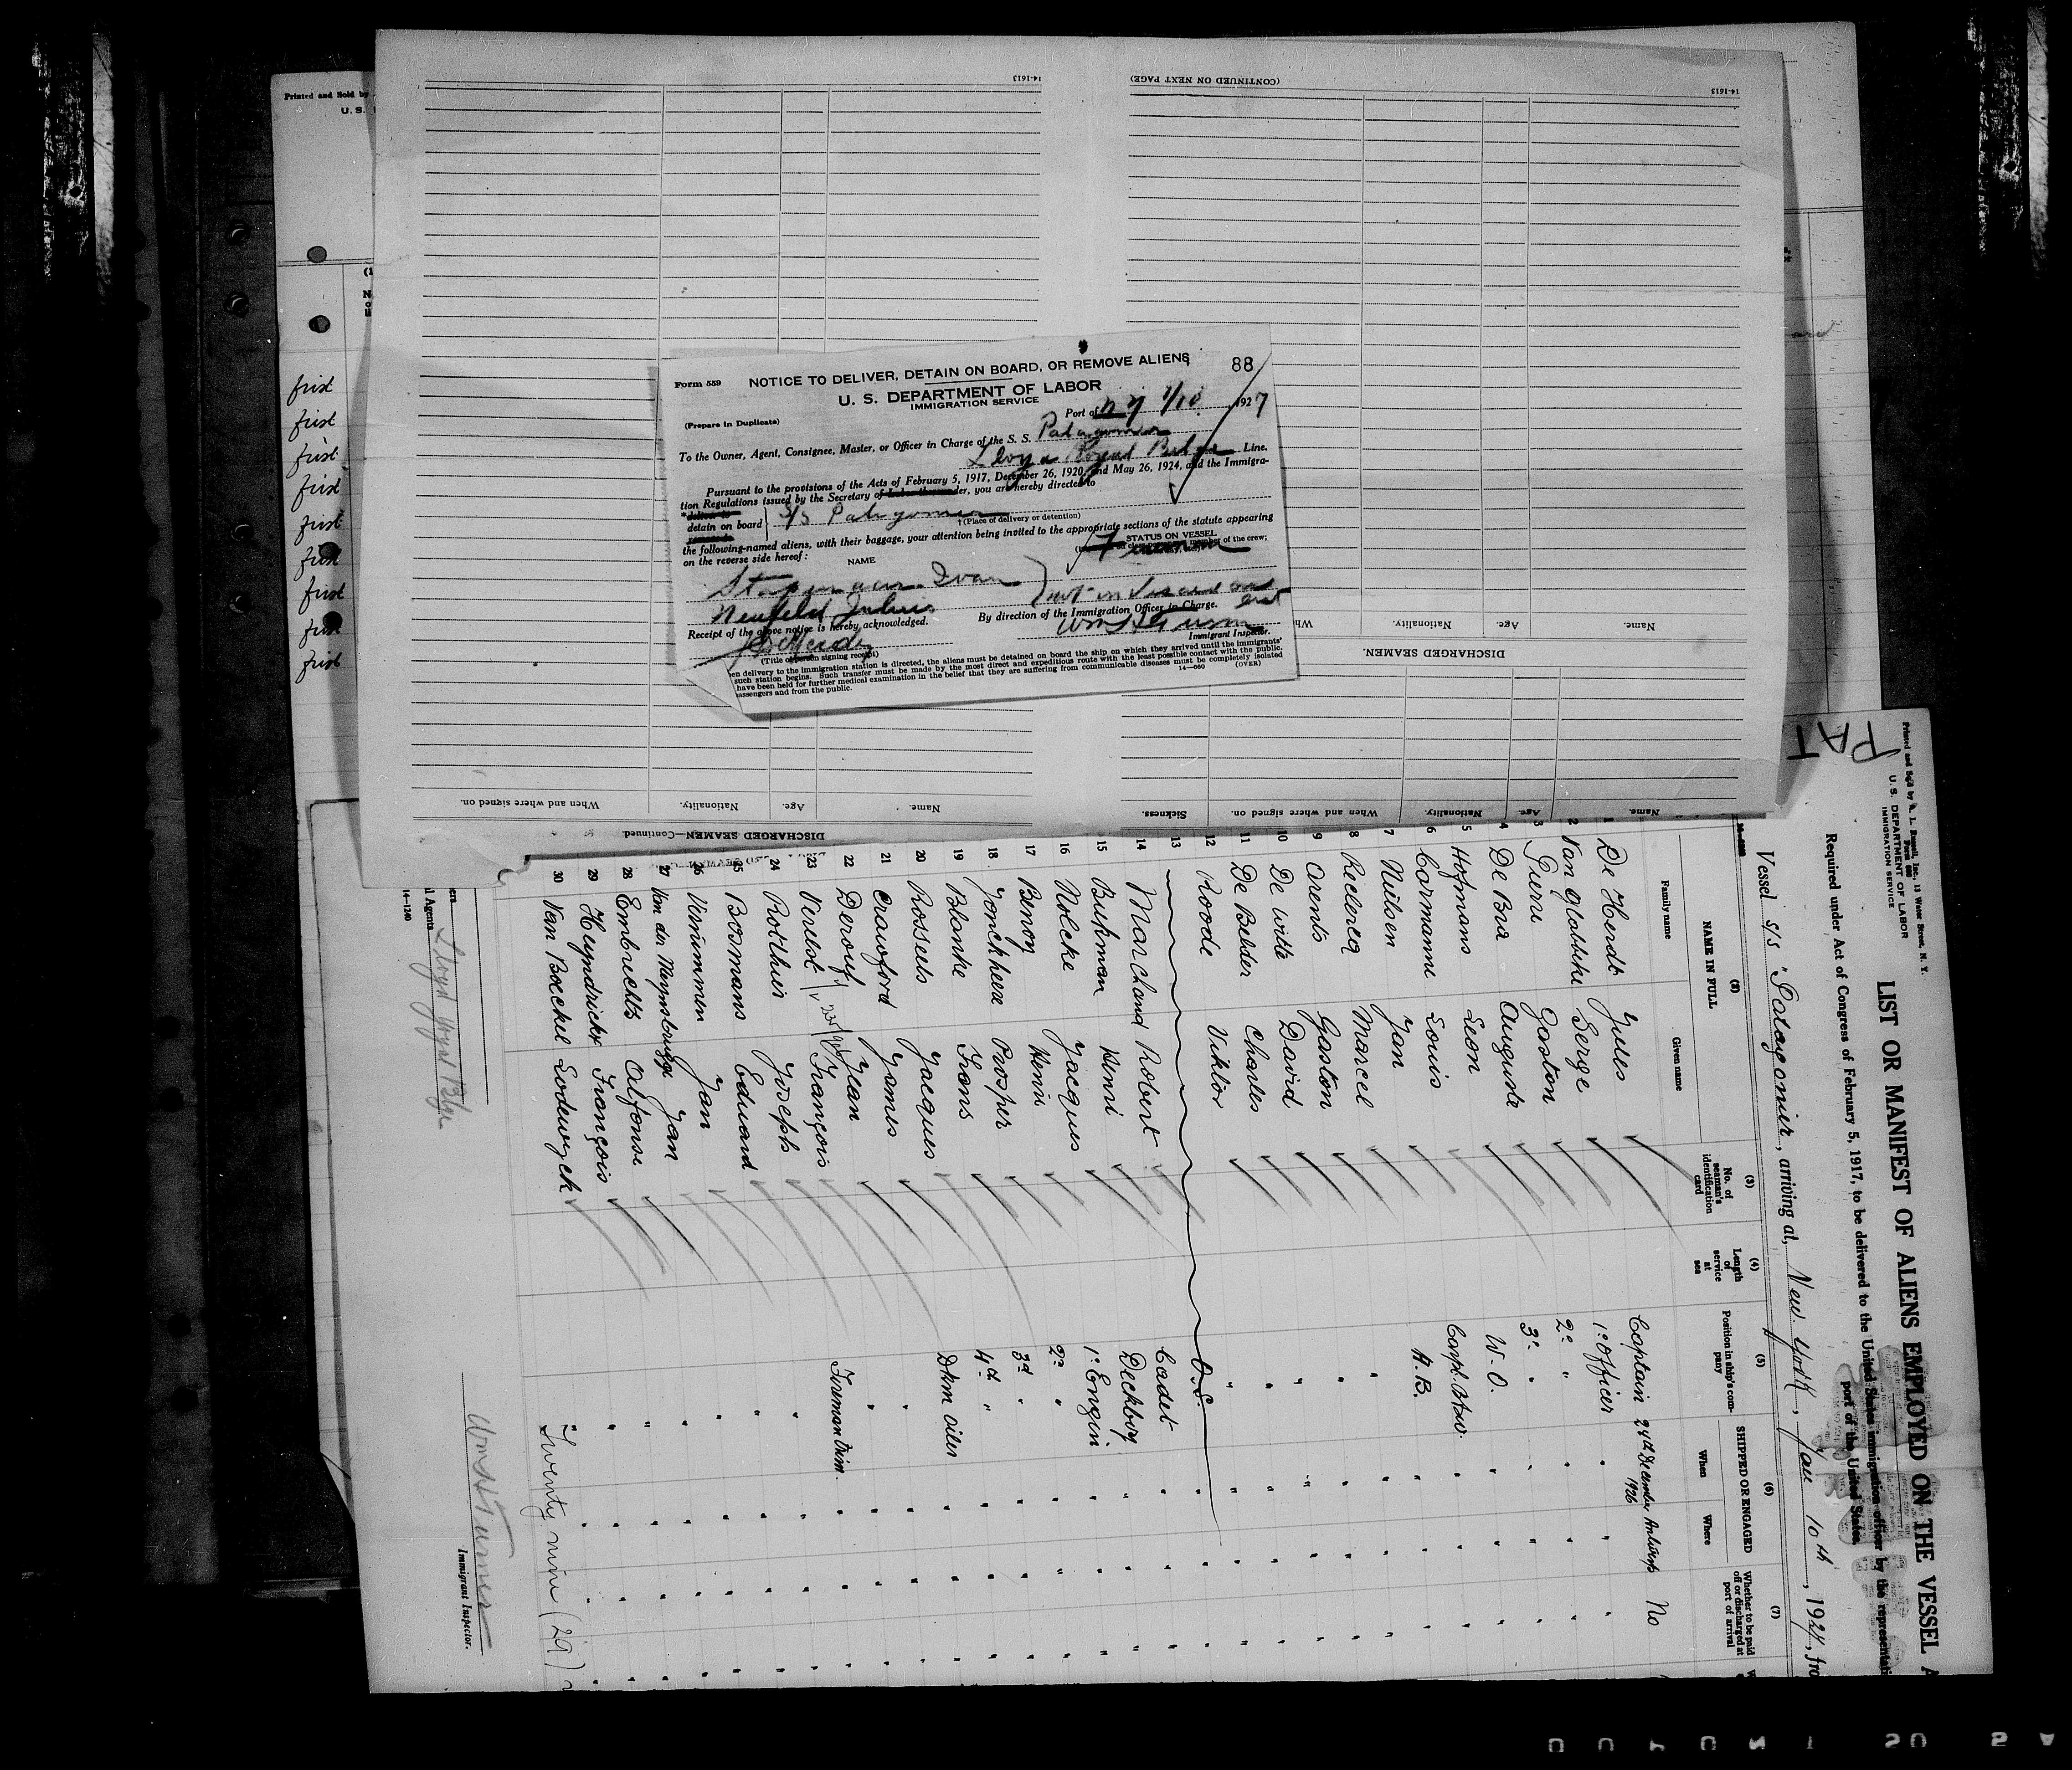 Printed and Sold by
U. S.
first
first
first
first
first
first
first
first
first
14-1613
(CONTINUED ON NEXT PAGE)
14-1613
Form 559
NOTICE TO DELIVER, DETAIN ON BOARD, OR REMOVE ALIENS
88
U. S. DEPARTMENT OF LABOR
IMMIGRATION SERVICE
(Prepare in Duplicate)
Port of N Y 1/10 1927
To the Owner, Agent, Consignee, Master, or Officer in Charge of the S. S. Patagonier
Lloyd Royal Belge Line.
Pursuant to the provisions of the Acts of February 5, 1917, December 26, 1920, and May 26, 1924, and the Immigra-
tion Regulations issued by the Secretary of Labor thereunder, you are hereby directed to
detain on board S/S Patagonier
†(Place of delivery or detention)
the following-named aliens, with their baggage, your attention being invited to the appropriate sections of the statute appearing
on the reverse side hereof:
NAME
STATUS ON VESSEL
member of the crew;
Ivan
Neufeld Julius
not on visaed crew
list
Receipt of the above notice is hereby acknowledged.
By direction of the Immigration Officer in Charge.
Immigrant Inspector.
(Title of person signing receipt)
en delivery to the immigration station is directed, the aliens must be detained on board the ship on which they arrived until the immigrants'
such station begins. Such transfer must be made by the most direct and expeditious route with the least possible contact with the public.
have been held for further medical examination in the belief that they are suffering from communicable diseases must be completely isolated
assengers and from the public.
14—660
(OVER)
DISCHARGED SEAMEN.
Name.
Age.
Nationality.
When and where signed on.
Sickness.
DISCHARGED SEAMEN—Continued.
Name.
Age.
Nationality.
When and where signed on.
PAT
Printed and Sold by A. L. Russell, Inc., 13 Water Street, N. Y.
U. S. DEPARTMENT OF LABOR
IMMIGRATION SERVICE
LIST OR MANIFEST OF ALIENS EMPLOYED ON THE VESSEL A
Required under Act of Congress of February 5, 1917, to be delivered to the United States immigration officer by the representati
port of the United States.
Vessel S/S "Patagonier, arriving at New York, Jan 10th, 1927, fro
(2)
NAME IN FULL
Family name
Given name
(3)
No. of seaman's identification card
(4)
Length of service at sea
(5)
Position in ship's company
(6)
SHIPPED OR ENGAGED
When
Where
(7)
Whether to be paid off or discharged at port of arrival
1 De Herdt Jules Captain 24th December 1926 Antwerp No
2 Van Glabbeke Serge 1° Officer " " "
3 Pierre Gaston 2° " " " "
4 De Bra Auguste 3° " " " "
5 Hofmans Leon W-O. " " "
6 Cormanne Louis Carp. " " "
7 Nielsen Jan A.B. " " "
8 Reclercq Marcel " " " "
9 Arents Gaston " " " "
10 De Witte David " " " "
11 De Belder Charles " " " "
12 Roode Viktor " " " "
13 O.S.
14 Marchand Robert Cadet " " "
15 Bukman Henri Deckboy " " "
16 Nolcke Jacques 1° Engin " " "
17 Benoy Henri 2° " " " "
18 Jonckheere Prosper 3d " " " "
19 Blanke Frans 4d " " " "
20 Rossels Jacques Dkm Oiler " " "
21 Crawford James " " " "
22 Derouf Jean " " " "
23 Verelst François Fireman Trim. " " "
24 Rotthier Joseph " " " "
25 Bosmans Eduard " " " "
26 Vinimmen Jan " " " "
27 Van der Meynsbrugge Jan " " " "
28 Embrechts Alfonse " " " "
29 Heyndrickx François " " " "
30 Van Boeckel Lodewyck " " " "
Twenty nine (29)
Agents Lloyd Royal Belge
14—1240
Wm H Turner
Immigrant Inspector.